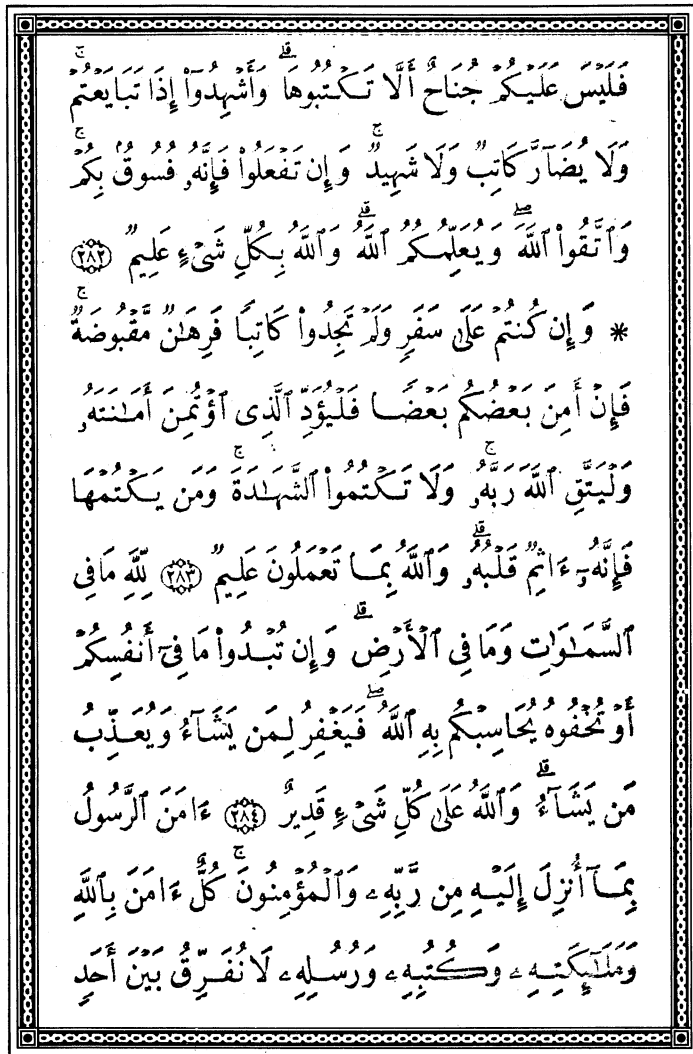 فَلَيْسَ عَلَيْكُمْ جُنَاحٌ أَلَّا تَكْتُبُوهَا ۗ وَأَشْهِدُوٓا۟ إِذَا تَبَايَعْتُمْ ۚ
وَلَا يُضَآرَّ كَاتِبٌ وَلَا شَهِيدٌ ۚ وَإِن تَفْعَلُوا۟ فَإِنَّهُۥ فُسُوقٌۢ بِكُمْ ۗ
وَٱتَّقُوا۟ ٱللَّهَ ۖ وَيُعَلِّمُكُمُ ٱللَّهُ ۗ وَٱللَّهُ بِكُلِّ شَىْءٍ عَلِيمٌ ﴿٢٨٢﴾
* وَإِن كُنتُمْ عَلَىٰ سَفَرٍ وَلَمْ تَجِدُوا۟ كَاتِبًا فَرِهَٰنٌ مَّقْبُوضَةٌ ۖ
فَإِنْ أَمِنَ بَعْضُكُم بَعْضًا فَلْيُؤَدِّ ٱلَّذِى ٱؤْتُمِنَ أَمَٰنَتَهُۥ
وَلْيَتَّقِ ٱللَّهَ رَبَّهُۥ ۗ وَلَا تَكْتُمُوا۟ ٱلشَّهَٰدَةَ ۚ وَمَن يَكْتُمْهَا
فَإِنَّهُۥٓ ءَاثِمٌ قَلْبُهُۥ ۗ وَٱللَّهُ بِمَا تَعْمَلُونَ عَلِيمٌ ﴿٢٨٣﴾ لِّلَّهِ مَا فِى
ٱلسَّمَٰوَٰتِ وَمَا فِى ٱلْأَرْضِ ۗ وَإِن تُبْدُوا۟ مَا فِىٓ أَنفُسِكُمْ
أَوْ تُخْفُوهُ يُحَاسِبْكُم بِهِ ٱللَّهُ ۖ فَيَغْفِرُ لِمَن يَشَآءُ وَيُعَذِّبُ
مَن يَشَآءُ ۗ وَٱللَّهُ عَلَىٰ كُلِّ شَىْءٍ قَدِيرٌ ﴿٢٨٤﴾ ءَامَنَ ٱلرَّسُولُ
بِمَآ أُنزِلَ إِلَيْهِ مِن رَّبِّهِۦ وَٱلْمُؤْمِنُونَ ۚ كُلٌّ ءَامَنَ بِٱللَّهِ
وَمَلَٰٓئِكَتِهِۦ وَكُتُبِهِۦ وَرُسُلِهِۦ لَا نُفَرِّقُ بَيْنَ أَحَدٍ